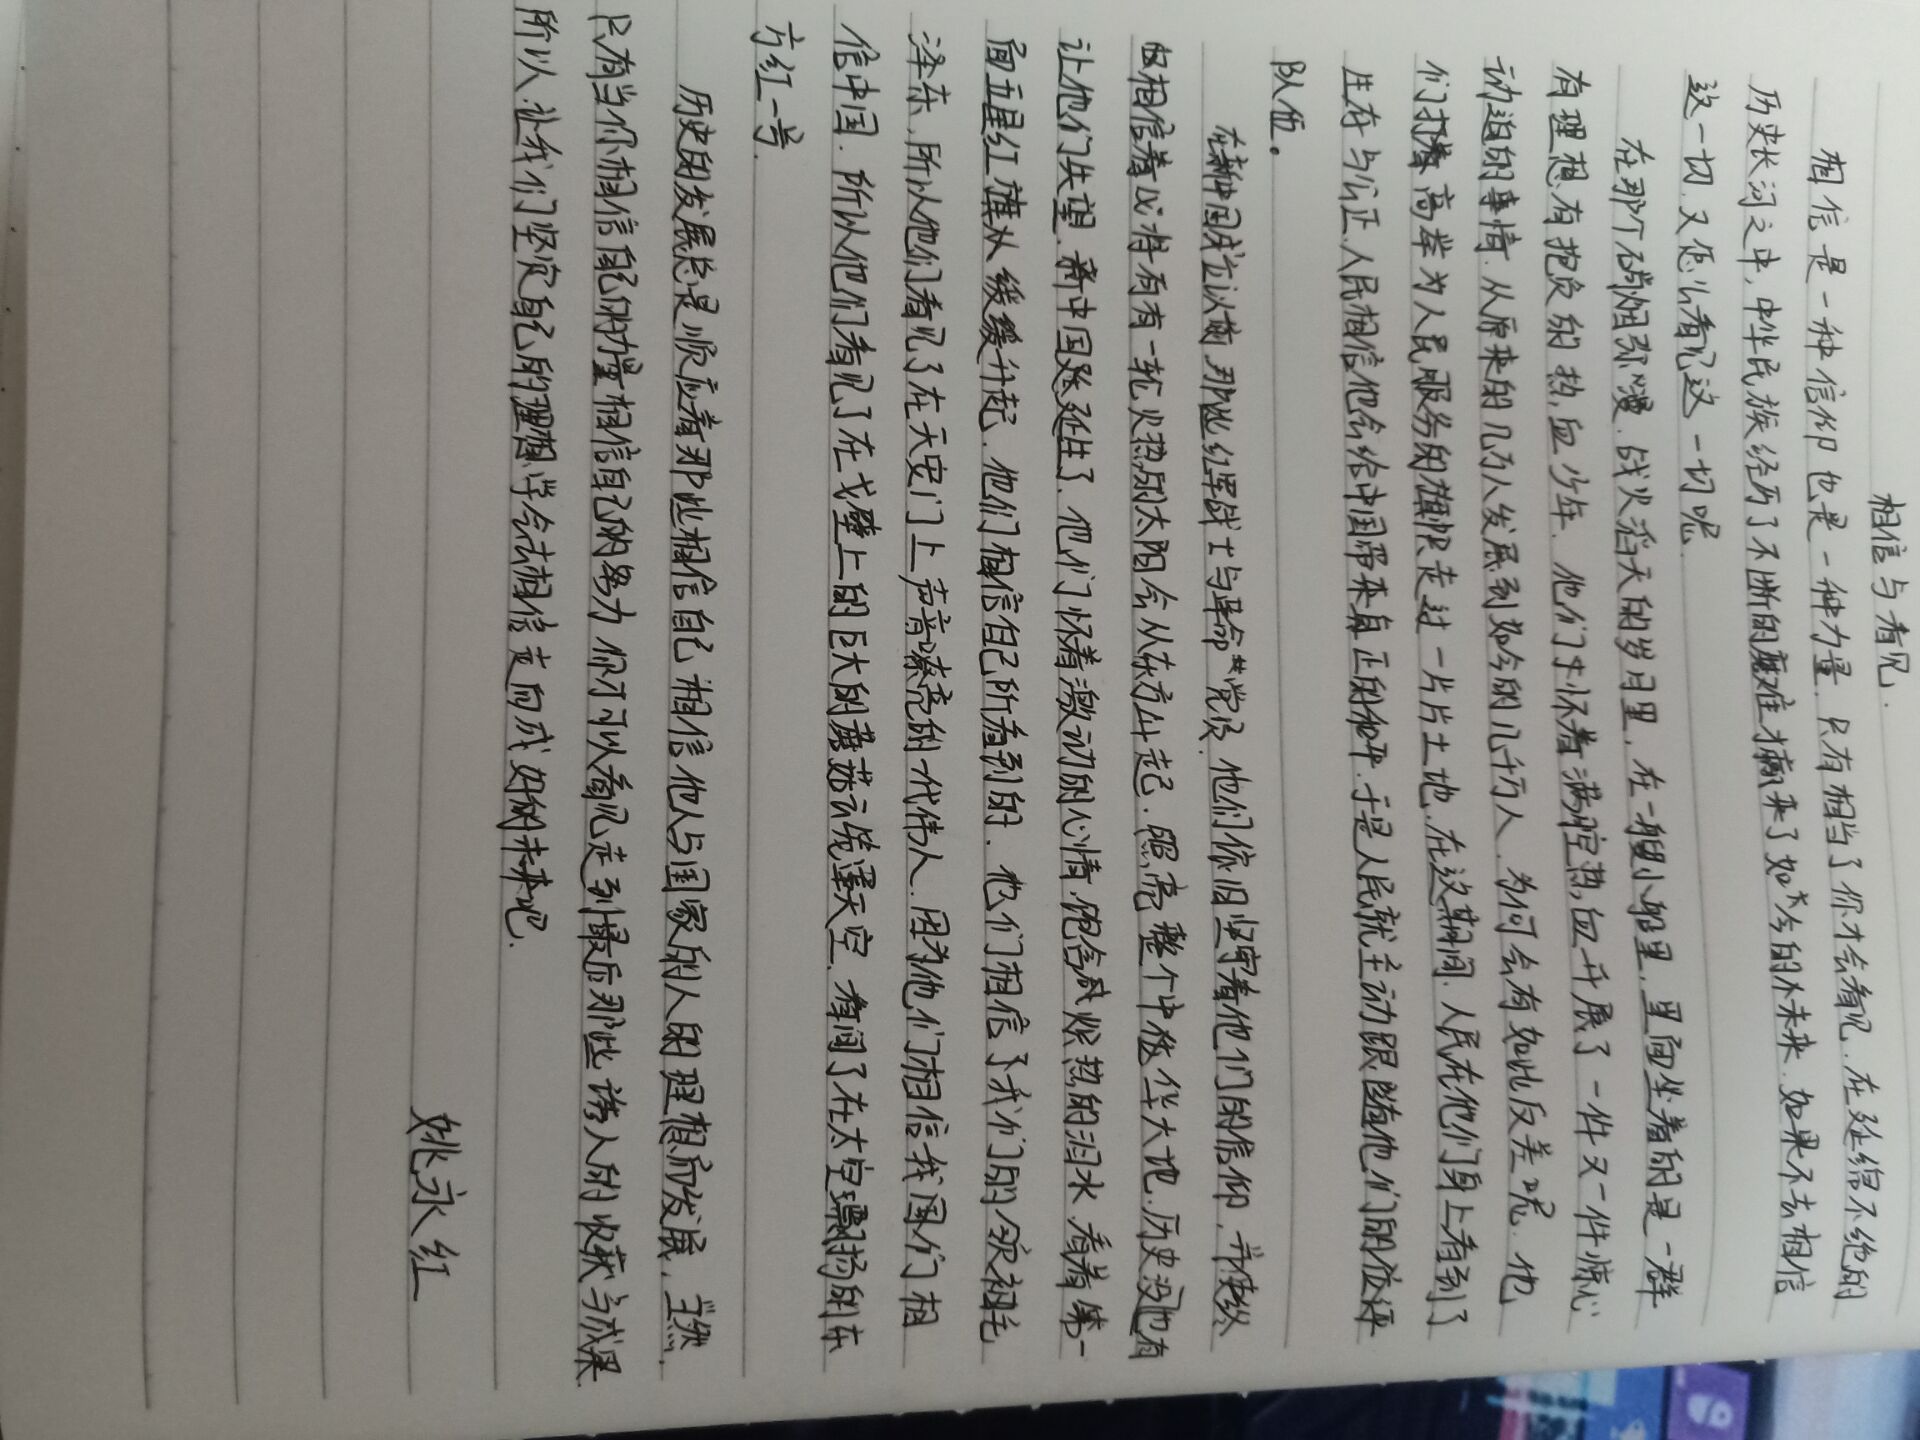 相信与看见.
相信是一种信仰也是一种力量.只有相当了你才会看见.在延绵不绝的
历史长河之中,中华民族经历了不断的磨难才换来了如今的未来.如果不去相信
这一切.又怎么看见这一切呢.
在那个硝烟弥漫.战火滔天的岁月里.在一艘小船里.里面坐着的是一群
有理想.有抱负的热血少年.他们才怀着满腔热血开展了一件又一件惊心
动迫的事情.从原来的几万人发展到如今的几千万人.为何会有如此反差呢.他
们打着高举为人民服务的旗帜走过一片片土地.在这期间.人民在他们身上看到了
生存与公正.人民相信他会给中国带来真正的和平.于是人民就主动跟随他们的伍
队伍。
在新中国成立以前那些红军战士与革命共党员.他们依旧坚守着他们的信仰.并
相信着必将有一轮火热的太阳会从东方斗起.照亮整个中华大地.历史没有
让他们失望.新中国延生了.他们怀着激动的心情.饱含炽热的泪水.看着第一
面五星红旗从缓缓升起.他们相信自己所看到的.他们相信了我们的领袖毛
泽东.所以他们看见了在天安门上声音嘹亮的一代伟人.因为他们相信我国们相
信中国.所以他们看见了在戈壁上的巨大的蘑菇云笼罩天空.看间了在太空飘扬的东
方红一号.
历史的发展总是顺应着那些相信自己.相信他人与国家的人的理想而发展.
只有当你相信自己的力量相信自己的努力你才可以看见走到最后那些诱人的收获与成果.
所以.让我们坚定自己的理想.学会去相信走向成好的未来吧.
姚永红